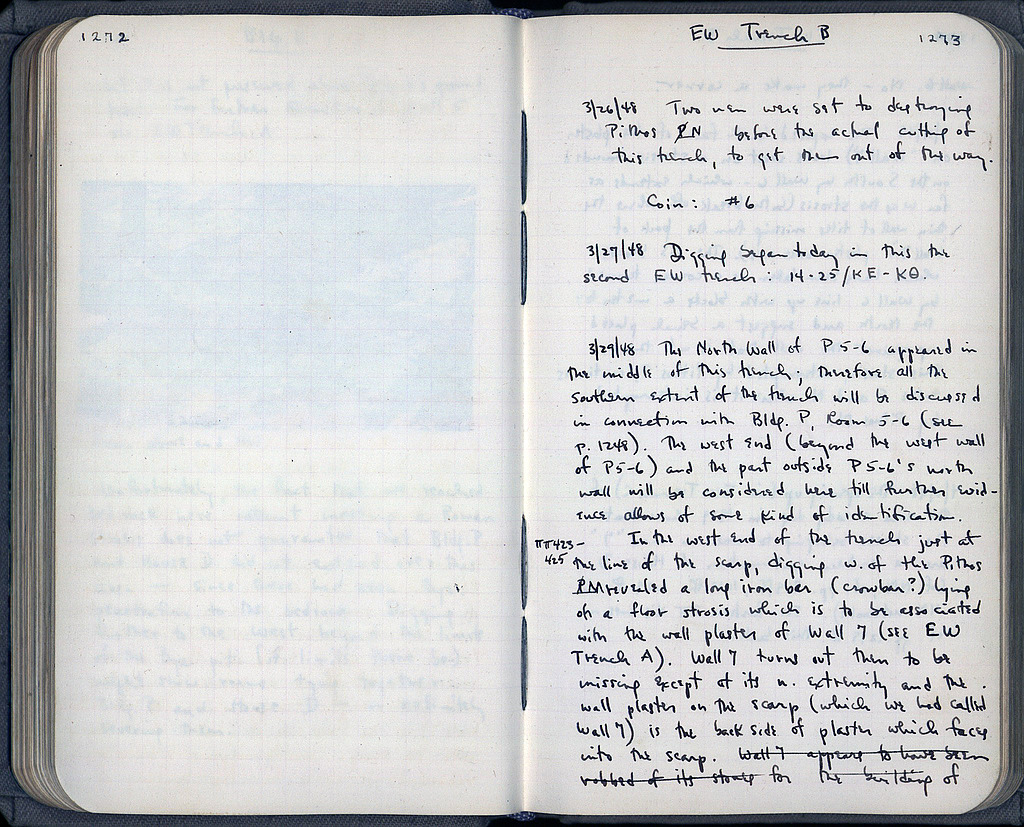 1272
EW Trench B
1273
3/26/48 Two men were set to destroying
Pithos PN before the actual cutting of
this trench, to get them out of the way.
Coin: #6
3/27/48 Digging began today in this the
second EW trench: 14-25/ΚΕ-ΚΘ.
3/29/48 The North Wall of P 5-6 appeared in
the middle of this trench; therefore all the
southern extent of the trench will be discussed
in connection with Bldg. P, Room 5-6 (see
p. 1248). The west end (beyond the west wall
of P5-6) and the part outside P5-6's north
wall will be considered here till further evid-
ence allows of some kind of identification.
In the west end of the trench just at
ΠΠ423-
425
the line of the scarp, digging w. of the Pithos
PM revealed a long iron bar (crowbar?) lying
on a floor strosis which is to be associated
with the wall plaster of Wall 7 (see EW
Trench A). Wall 7 turns out then to be
missing except at its n. extremity and the
wall plaster on the scarp (which we had called
Wall 7) is the back side of plaster which faces
into the scarp. Wall 7 appears to have been
robbed of its stones for the building of